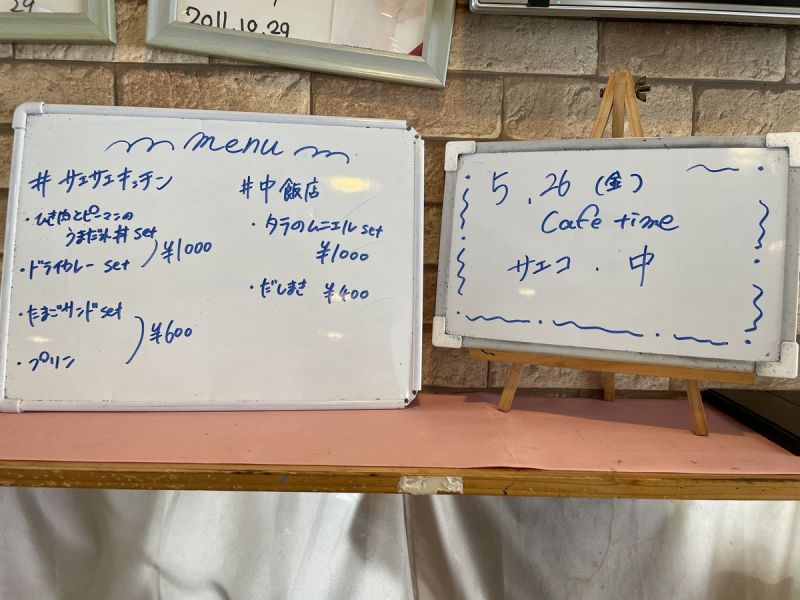 29
2011.10.29
menu
# サエサエキッチン
・ひき肉とピーマンの
うまだれ丼 set
・ドライカレー set
¥1000
・たまごサンドset
・プリン
¥600
#中飯店
・タラのムニエル set
¥1000
・だしまき ¥400
5.26 (金)
Cafe time
サエコ . 中